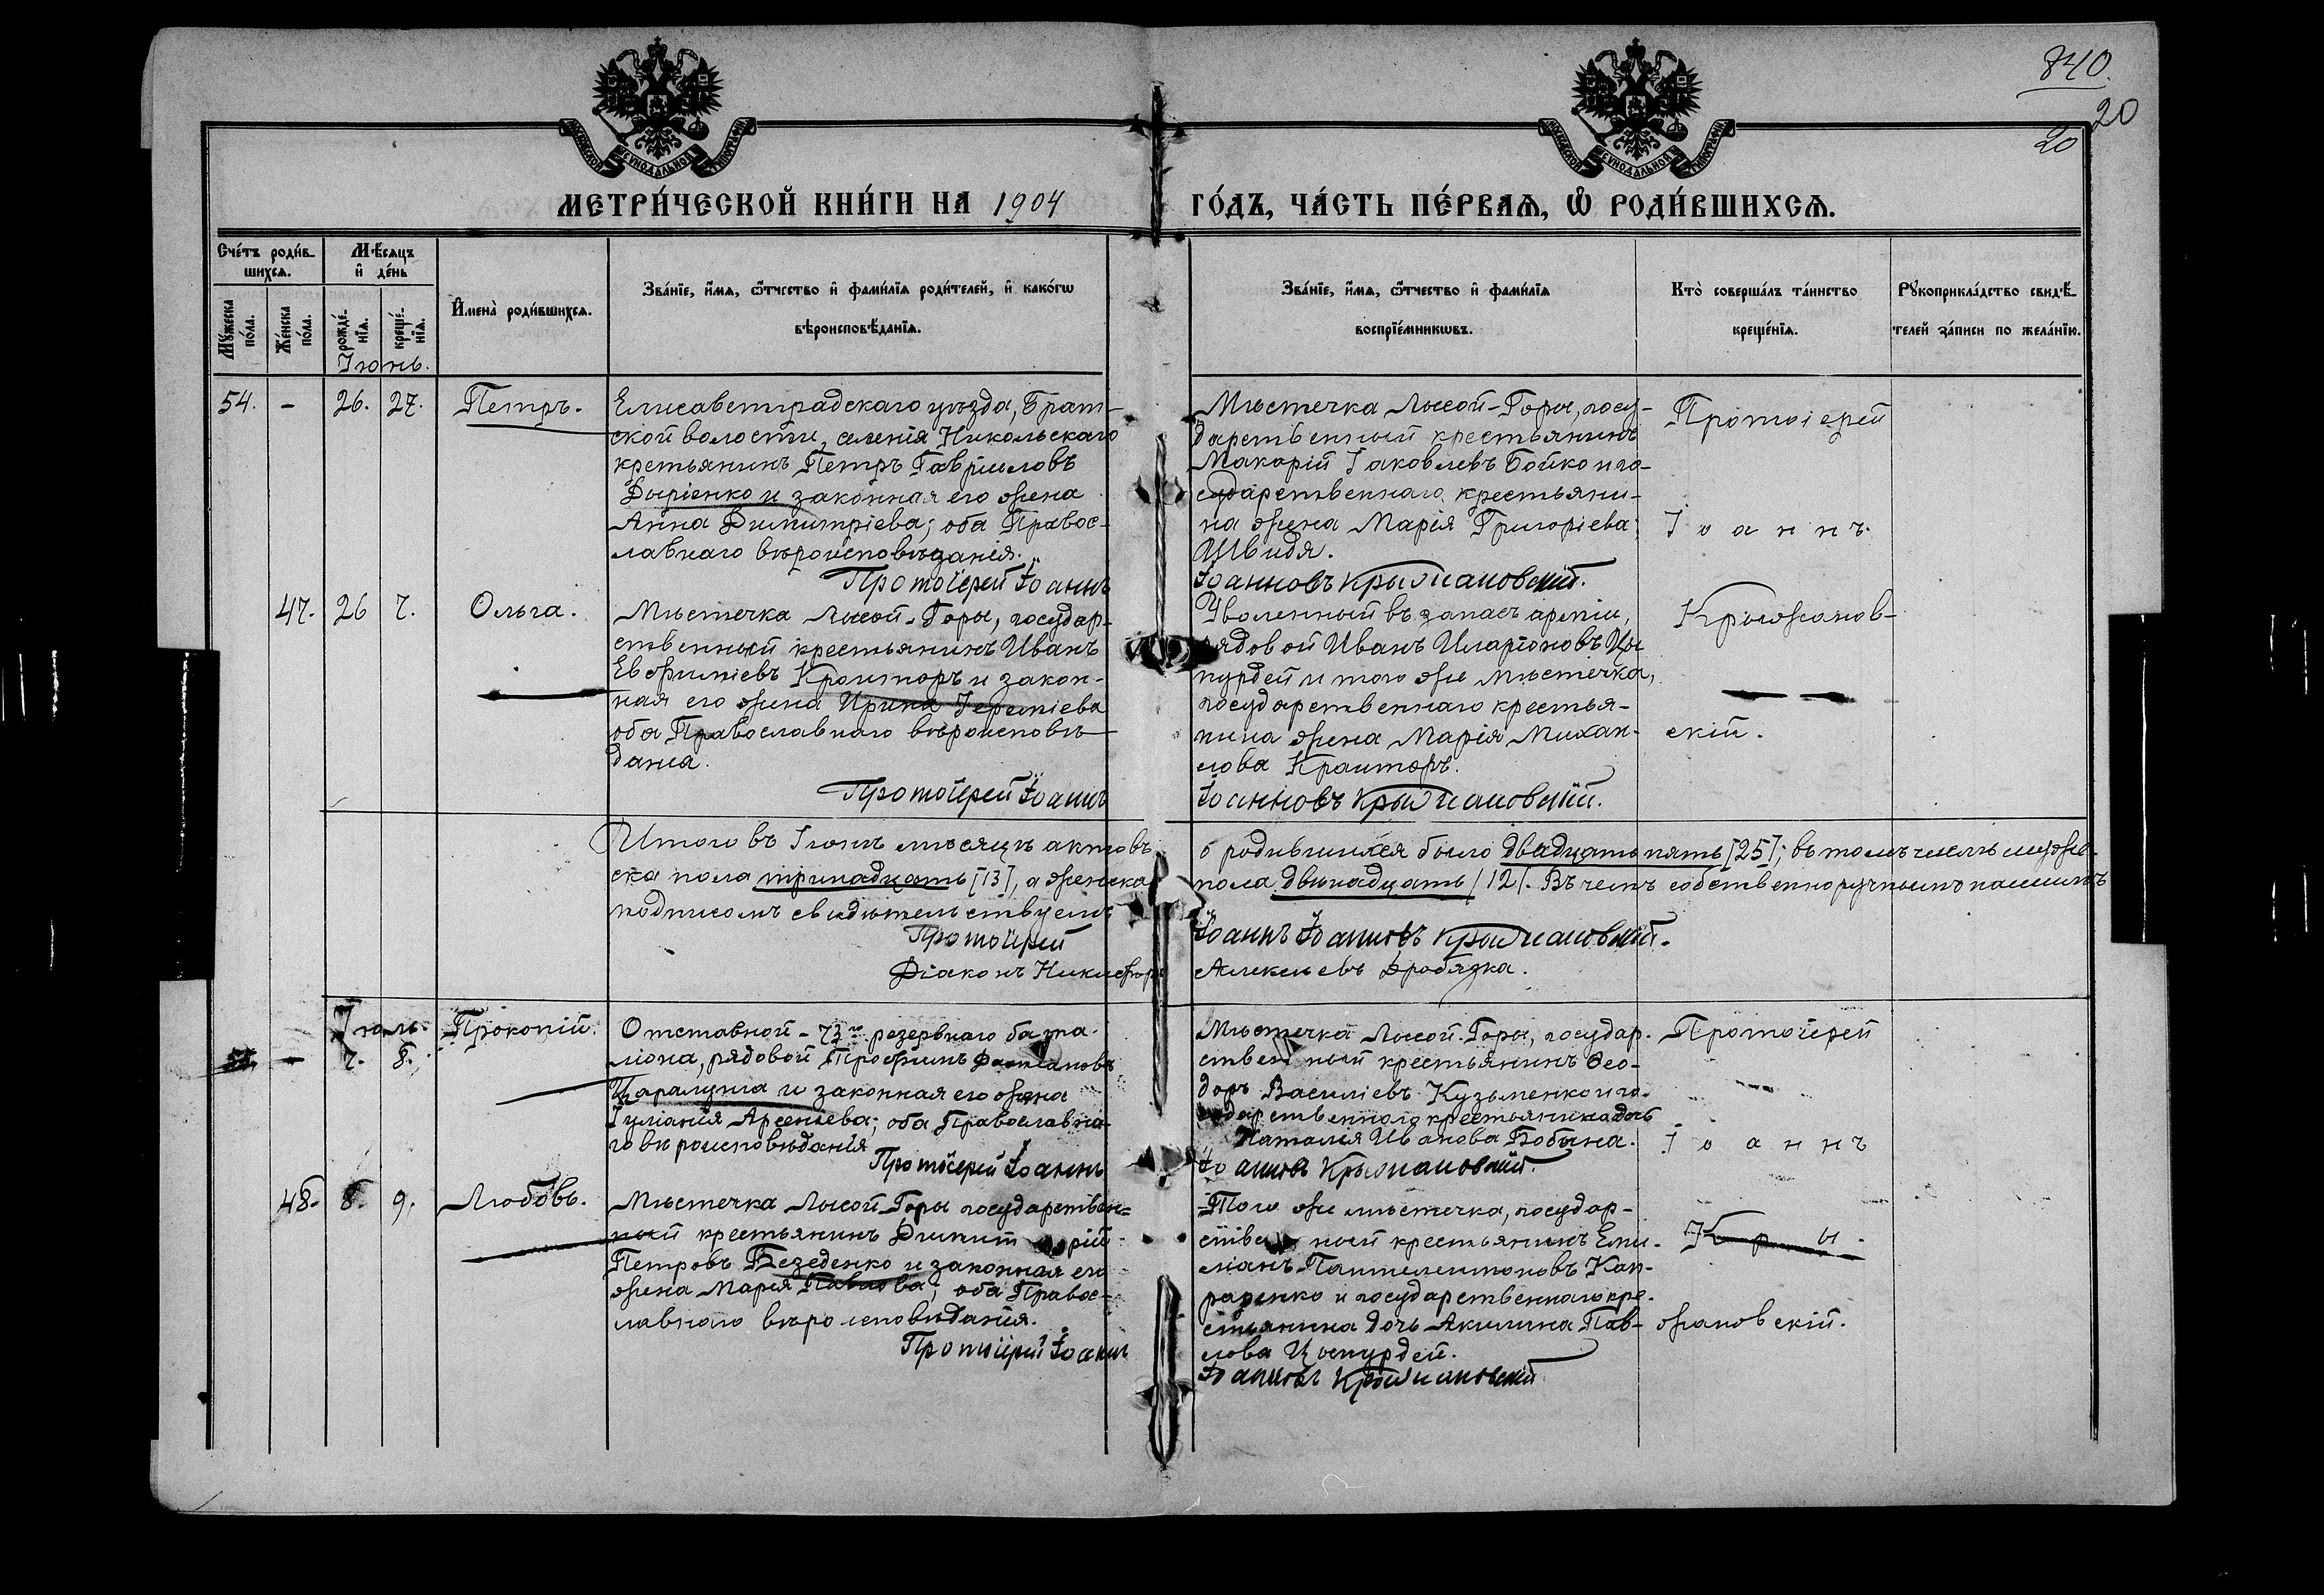 840.
20
20
МОСКОВСКОЙ СѴНОДАЛЬНОЙ ТИПОГРАФІИ
МОСКОВСКОЙ СѴНОДАЛЬНОЙ ТИПОГРАФІИ
МЕТРИ́ЧЕСКОЙ КНИ́ГИ НА 1904
ГО́ДЪ, ЧА́СТЬ ПЕ́РВАѦ, Ѡ РОДИ́ВШИХСѦ.
Сче́тъ роди́в-
шихсѧ.
Мѣ́сяцъ
и де́нь
Мꙋ́жеска
по́ла.
Же́нска
по́ла.
рожде́-
нїѧ.
креще́-
нїѧ.
Имена̀ роди́вшихсѧ.
Зва́нїе, и́мѧ, ѻ́тчество и фами́лїѧ роди́телей, и како́гѡ
вѣроисповѣ́данїѧ.
Зва́нїе, и́мѧ, ѻ́тчество и фами́лїѧ
воспрїе́мникѡвъ.
Кто̀ соверша́лъ та́инство
креще́нїѧ.
Рꙋкоприкла́дство свидѣ́-
телей за́писи по жела́нїю.
Іюнь.
54. - 26. 27. Петръ.
Елисаветградскаго уѣзда, Брат-
ской волости, селенія Никольскаго
кретьянинъ Петръ Гавріиловъ
Дыріенко и законная его жена
Анна Димитріева; оба Правос-
лавнаго вѣроисповѣданія.
Протоіерей Іоаннъ
Мѣстечка Лысой-Горы, госу-
дарственный крестьянинъ
Макарій Іаковлевъ Бойко и го-
сударственнаго крестьяни-
на жена Марія Григоріева
Швидя.
Іоанновъ Крыжановскій.
Протоіерей
Іоаннъ
Крыжанов-
скій.
47. 26 7. Ольга.
Мѣстечка Лысой-Горы, государ-
ственный крестьянинъ Иванъ
Евфиміевъ Краиторъ и закон-
ная его жена Ирина Іереміева
оба Православнаго вѣроисповѣ-
данія.
Протоіерей Іоаннъ
Уволенный въ запасъ арміи,
рядовой Иванъ Иларіоновъ Цы
пурдей и того же мѣстечка,
государственнаго крестья-
нина жена Марія Михаи-
лова Краиторъ.
Іоанновъ Крыжановскій.
Итого въ Іюнѣ мѣсяцѣ актовъ
о родившихся было двадцать пять [25]; въ томъ числѣ муже-
ска пола тринадцать [13], а женска
пола двѣнадцать [12]. Въ чемъ собственноручнымъ нашимъ
подписомъ свидѣтельствуемъ
Протоіерей
Іоаннъ Іоанновъ Крыжановскій.
Діаконъ Никифоръ
Алексѣевъ Дробязка.
Іюль.
- 7. 8. Прокопій.
Отставной - 73го резервнаго бата-
ліона, рядовой Трофимъ
Царалунга и законная его жена
Іуліанія Арсеньева; оба Православна-
го вѣроисповѣданія
Протоіерей Іоаннъ
Мѣстечка Лысой-Горы, государ-
ственный крестьянинъ Ѳео-
доръ Василіевъ Кузьменко и го-
сударственнаго крестьянина дочь
Наталія Иванова Бобына.
Іоанновъ Крыжановскій.
Протоіерей
Іоаннъ
Кры-
жановскій.
48. 8. 9. Любовь.
Мѣстечка Лысой-Горы государствен=
ный крестьянинъ Димитрій
Петровъ Безеденко и законная его
жена Марія Павлова; оба Правос-
лавнаго вѣроисповѣданія.
Протоіерей Іоаннъ
Того же мѣстечка, государ-
ственный крестьянинъ Еми-
ліанъ Пантелеимоновъ Кап-
раренко и государственнаго кре-
стьянина дочь Акилина Пав-
лова Цыпурдей.
Іоанновъ Крыжановскій